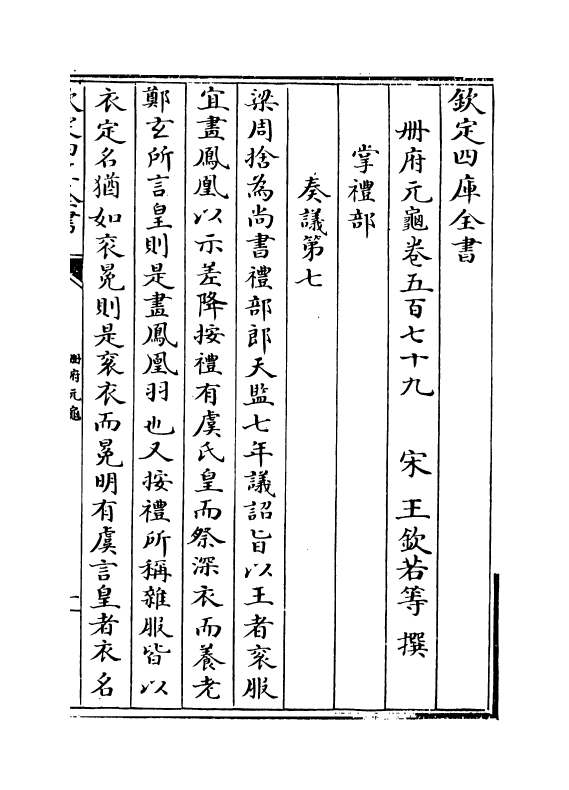 欽定四庫全書
冊府元龜卷五百七十九　宋　王欽若等　撰
掌禮部
奏議第七
梁周捨為尚書禮部郎天監七年議詔旨以王者衮服
宜畫鳳凰以示差降按禮有虞氏皇而祭深衣而養老
鄭玄所言皇則是畫鳳凰羽也又按禮所稱雜服皆以
衣定名猶如衮冕則是衮衣而冕明有虞言皇者衣名
欽定四庫全書
冊府元龜
一